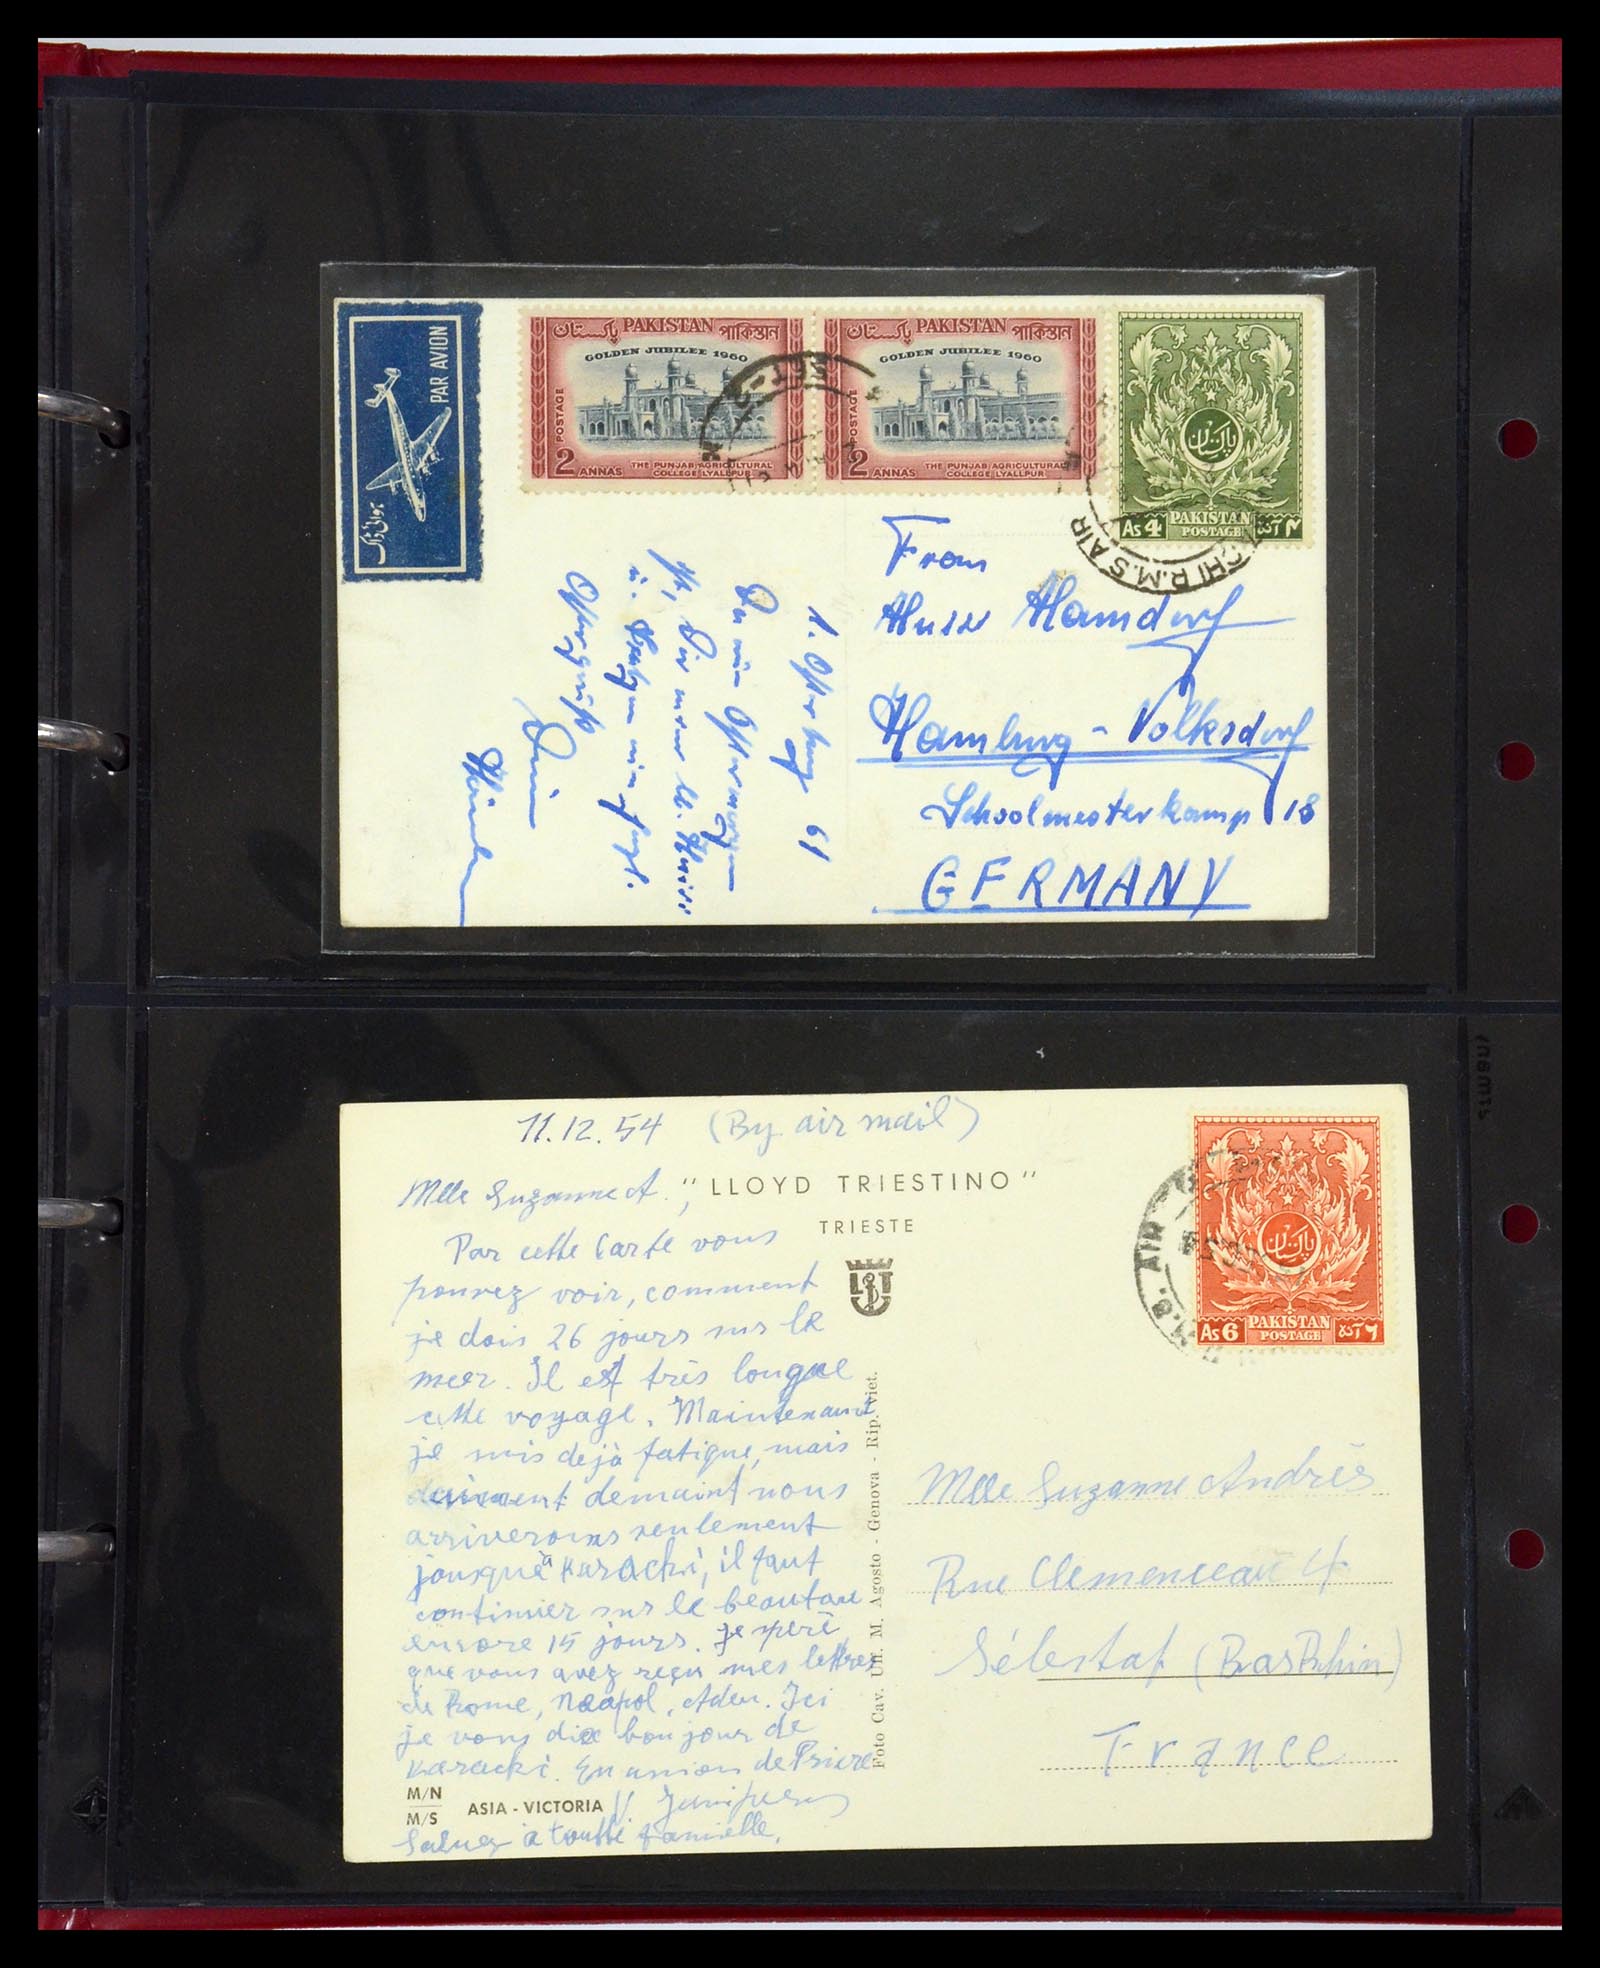 PAR AVION
ہوائی ڈاک
پاکستان PAKISTAN পাকিস্তান
GOLDEN JUBILEE 1960
POSTAGE
2 ANNAS THE PUNJAB AGRICULTURAL
COLLEGE LYALLPUR
پاکستان PAKISTAN পাকিস্তান
GOLDEN JUBILEE 1960
POSTAGE
2 ANNAS THE PUNJAB AGRICULTURAL
COLLEGE LYALLPUR
پاکستان
As 4 PAKISTAN
POSTAGE
R.M.S AIR
1. Ostertag 61
From
Hamdorf
Hamburg - Volksdorf
Schoolmeesterkamp 18
GERMANY
11.12.54 (By air mail)
Mlle Suzanne A.,
"LLOYD TRIESTINO"
TRIESTE
LT
Par cette Carte vous
pouvez voir, comment
je dois 26 jours sur la
meer. Il est très longue
cette voyage. Maintenant
je suis dejà fatigue, mais
demaint nous
arriverons seulement
jousque à Karachi, il faut
continuer sur le beautau
encore 15 jours. Je spere
que vous avez reçu mes lettres
de Rome, Neapol, Aden. Ici
je vous dise bonjour de
Karachi. En union de Priere
Saluez à toutte famielle.
M/N
M/S ASIA - VICTORIA
Foto Cav. Uff. M. Agosto - Genova - Rip. viet.
پاکستان
As 6 PAKISTAN
POSTAGE
AIR
Mlle Suzanne Andrès
Rue Clemenceau 4
Sélestat (BasRhin)
France